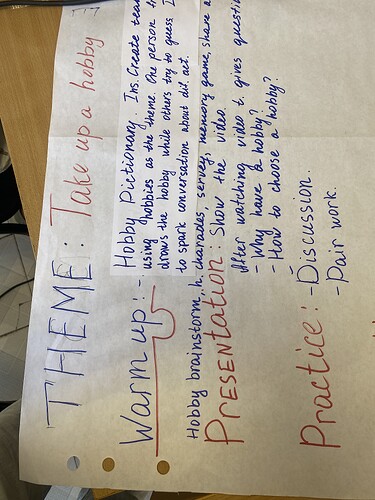 THEME: Take up a hobby
Warm up: - Hobby Pictionary. Ins. Create
using hobbies as the theme. One person
draws the hobby while others try to guess
to spark conversation about dif. act.
Hobby brainstorm, h. charades, servey, memory game, share
PRESENTATION: Show the video.
After watching video t. gives
- Why have a hobby?
- How to choose a hobby?
Practice: - Discussion.
- Pair work.